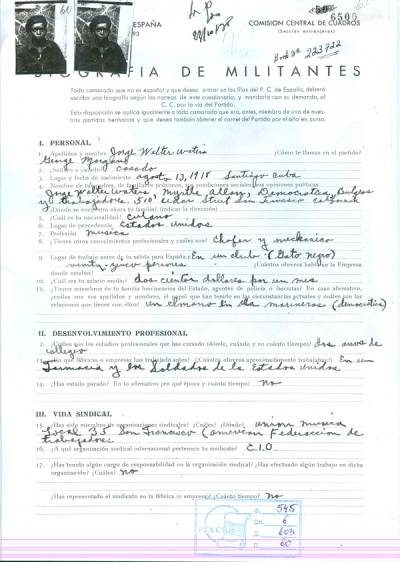 60
ESPAÑA
COMISION CENTRAL DE CUADROS
(Sección extranjeros)
93
6500
29/10/38
223722
BIOGRAFIA DE MILITANTES
Todo camarada que no es español y que desea entrar en las filas del P. C. de España, deberá
escribir una biografía según las normas de este cuestionario, y mandarla con su demanda, al
C. C. por la vía del Partido.
Esta disposición se aplica igualmente a todo camarada que era, antes, miembro de uno de nues-
tros partidos hermanos y que desea también obtener el carnet del Partido por el año en curso.
I. PERSONAL
1. Apellidos y nombre Jorge Walter Waters ¿Cómo te llaman en el partido?
George Morgans
2. casado
3. Lugar y fecha de nacimiento agost, 13, 1918 Santiago Cuba
4. Nombre de tus padres, de familia próximos, sus condiciones sociales sus opiniones políticas
Jorge Walter Waters, Myrtle Allen, Democratas, Burgos
y trabajadores, 510 Cedar Street San Francisco
¿Dónde se encuentra ahora tu familia? (indicar la dirección)
5. ¿Cuál es tu nacionalidad? cubano
6. Lugar de procedencia Estados Unidos
7. Profesión musica
8. ¿Tienes otros conocimientos profesionales y cuáles son? Chofer y mechanico
9. Lugar de trabajo antes de tu salida para España: En un club (Gato negro)
¿Cuántos obreros había en la Empresa
veinty cinco persones
donde estabas?
10. ¿Cuál era tu salario medio? dos cientos dollares por un mes
11. ¿Tienes miembros de tu familia funcionarios del Estado, agentes de policía o fascistas? En caso afirmativo,
¿cuáles son sus apellidos y nombres, el papel que han tenido en las circunstancias actuales y cuáles son las
relaciones que tienes con ellos? un elmano en la marineros (democratis)
II. DESENVOLVIMIENTO PROFESIONAL
12. ¿Cuáles son los estudios profesionales que has cursado (dónde, cuándo y en cuánto tiempo)? dos anos de
collegio
13. ¿En qué fábricas o empresas has trabajado antes? ¿Cuántos obreros aproximadamente trabajaban?) En un
Farmacia y En Soldados de la Estados Unidos
14. ¿Has estado parado? En lo afirmativo ¿en qué época y cuánto tiempo? No
III. VIDA SINDICAL
15. ¿Has sido miembro de organizaciones sindicales? ¿Cuáles? ¿Dónde? union musica
Local 35 San Francisco (american Federaccion de
trabajadores
16. ¿A qué organización sindical internacional pertenece tu sindicato? C.I.O.
17. ¿Has tenido algún cargo de responsabilidad en la organización sindical? ¿Has efectuado algún trabajo en dicha
organización? ¿Cuáles? no
¿Has representado el sindicato en la fábrica (o empresa)? ¿Cuánto tiempo? No
Ф. 545
Оп. 6
Д. 603
Л. 60